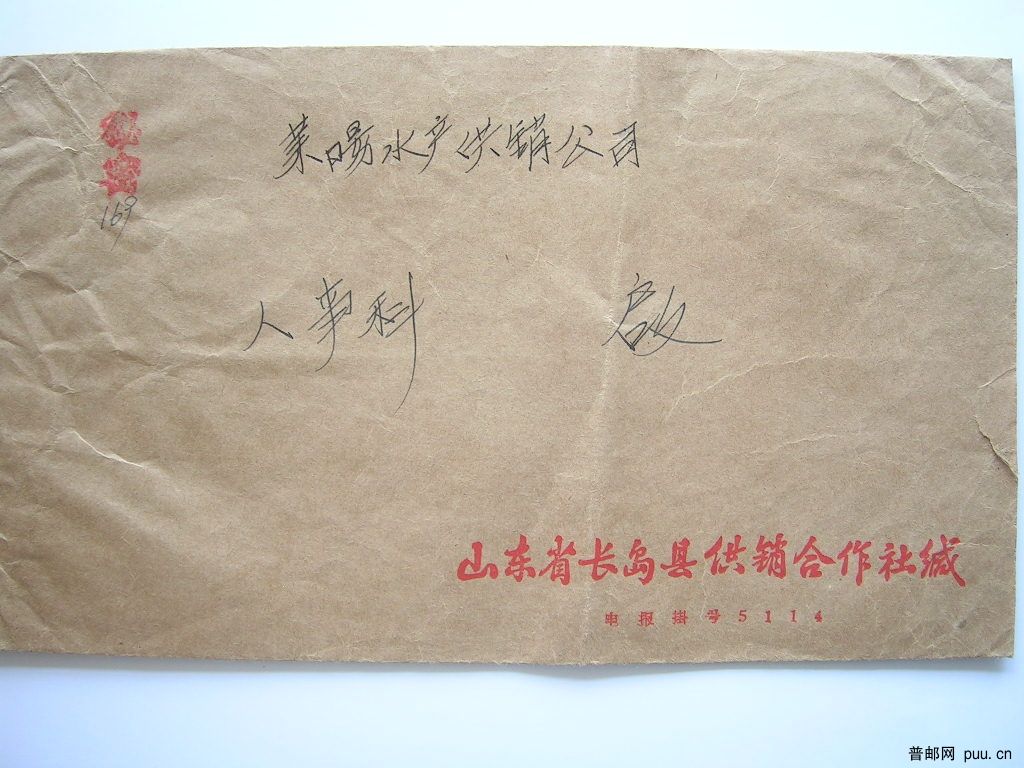 秘密
169
莱阳水产供销公司
人事科 启
山东省长岛县供销合作社缄
电报掛号5114
普邮网 puu.cn